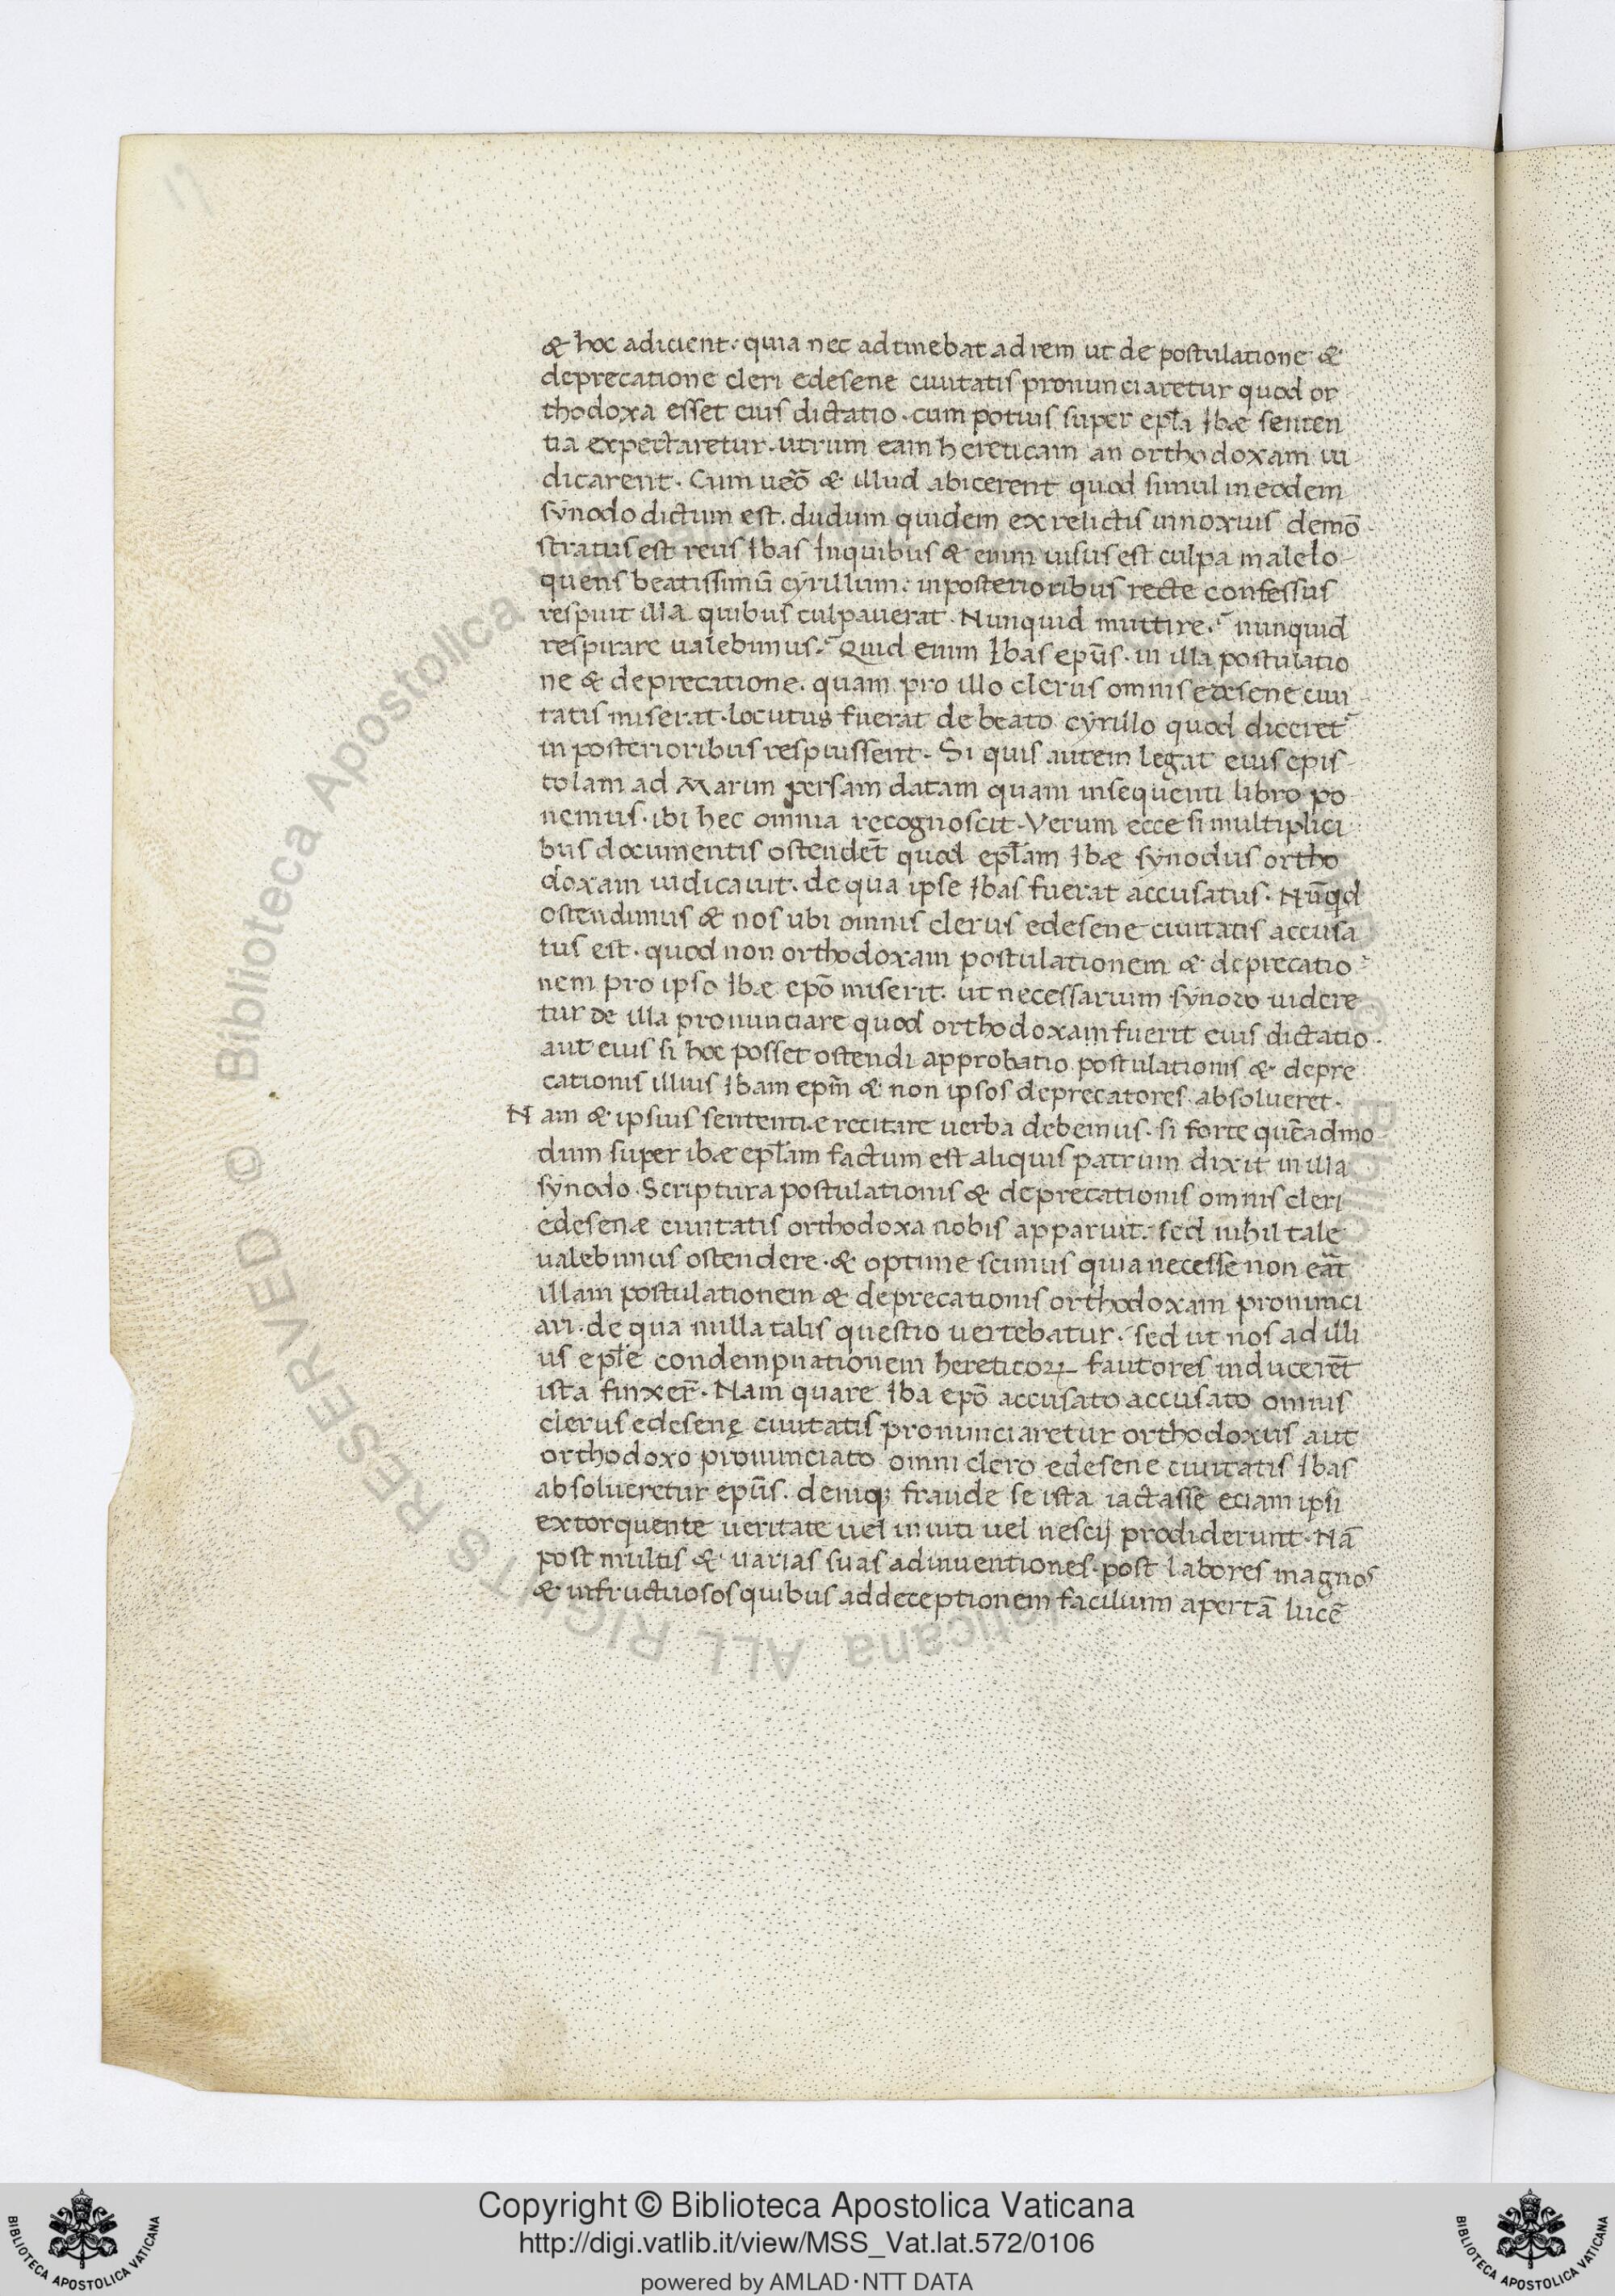 & hoc adicient. quia nec adtinebat ad rem ut de postulatione &
deprecatione cleri edesene ciuitatis pronunciaretur quod or
thodoxa esset eius dictatio. cum potius super epła Ibæ senten
tia expectaretur. utrum eam hereticam an orthodoxam iu
dicarent. Cum uēo & illud abicerent quod simul in eodem
synodo dictum est. dudum quidem ex relictis innoxius demō
stratus est reus Ibas Inquibus & enim uisus est culpa male lo
quens beatissimū cyrillum. inposterioribus recte confessus
respuit illa quibus culpauerat. Nunquid muttire. nunquid
respirare ualebimus. Quid enim Ibas epūs. in illa postulatio
ne & deprecatione. quam pro illo clerus omnis edesene ciui
tatis miserat. locutus fuerat de beato cyrillo quod diceret
in posterioribus respuissent. Si quis autem legat eius epis
tolam ad Marim persam datam quam insequenti libro po
nemus. ibi hec omnia recognoscit. Verum ecce si multiplici
bus documentis ostendēt quod epłam Ibæ synodus ortho
doxam iudicauit. de qua ipse Ibas fuerat accusatus. Nūqid
ostendimus & nos ubi omnis clerus edesene ciuitatis accusa
tus est. quod non orthodoxam postulationem & deprecatio
nem pro ipso Ibæ epō miserit. ut necessarium synodo uidere
tur de illa pronunciare quod orthodoxam fuerit eius dictatio.
aut eius si hoc posset ostendi approbatio postulationis & depre
cationis illius Ibam epm̄ & non ipsos deprecatores absolueret.
Nam & ipsius sententiæ recitare uerba debemus. si forte quēadmo
dum super ibæ epłam factum est aliquis patrum dixit in illa
synodo. Scriptura postulationis & deprecationis omnis cleri
edesenæ ciuitatis orthodoxa nobis apparuit. sed nihil tale
ualebimus ostendere. & optime scimus quia necesse non eāt
illam postulationem & deprecationis orthodoxam pronunci
ari. de qua nulla talis questio uertebatur. sed ut nos ad illi
us epłe condempnationem hereticoꝝ fautores inducerēt
ista finxer̄. Nam quare Iba epō accusato accusato omnis
clerus edesenę ciuitatis pronunciaretur orthodoxus aut
orthodoxo pronunciato omni clero edesene ciuitatis Ibas
absolueretur epūs. deniqꝫ fraude se ista iactasse eciam ipsi
extorquente ueritate uel inuiti uel nescij prodiderunt. Nā
post multis & uarias suas adinuentiones. post labores magnos
& infructuosos quibus ad deceptionem facilium apertā lucē
Copyright © Biblioteca Apostolica Vaticana
http://digi.vatlib.it/view/MSS_Vat.lat.572/0106
powered by AMLAD·NTT DATA
BIBLIOTECA APOSTOLICA VATICANA
BIBLIOTECA APOSTOLICA VATICANA